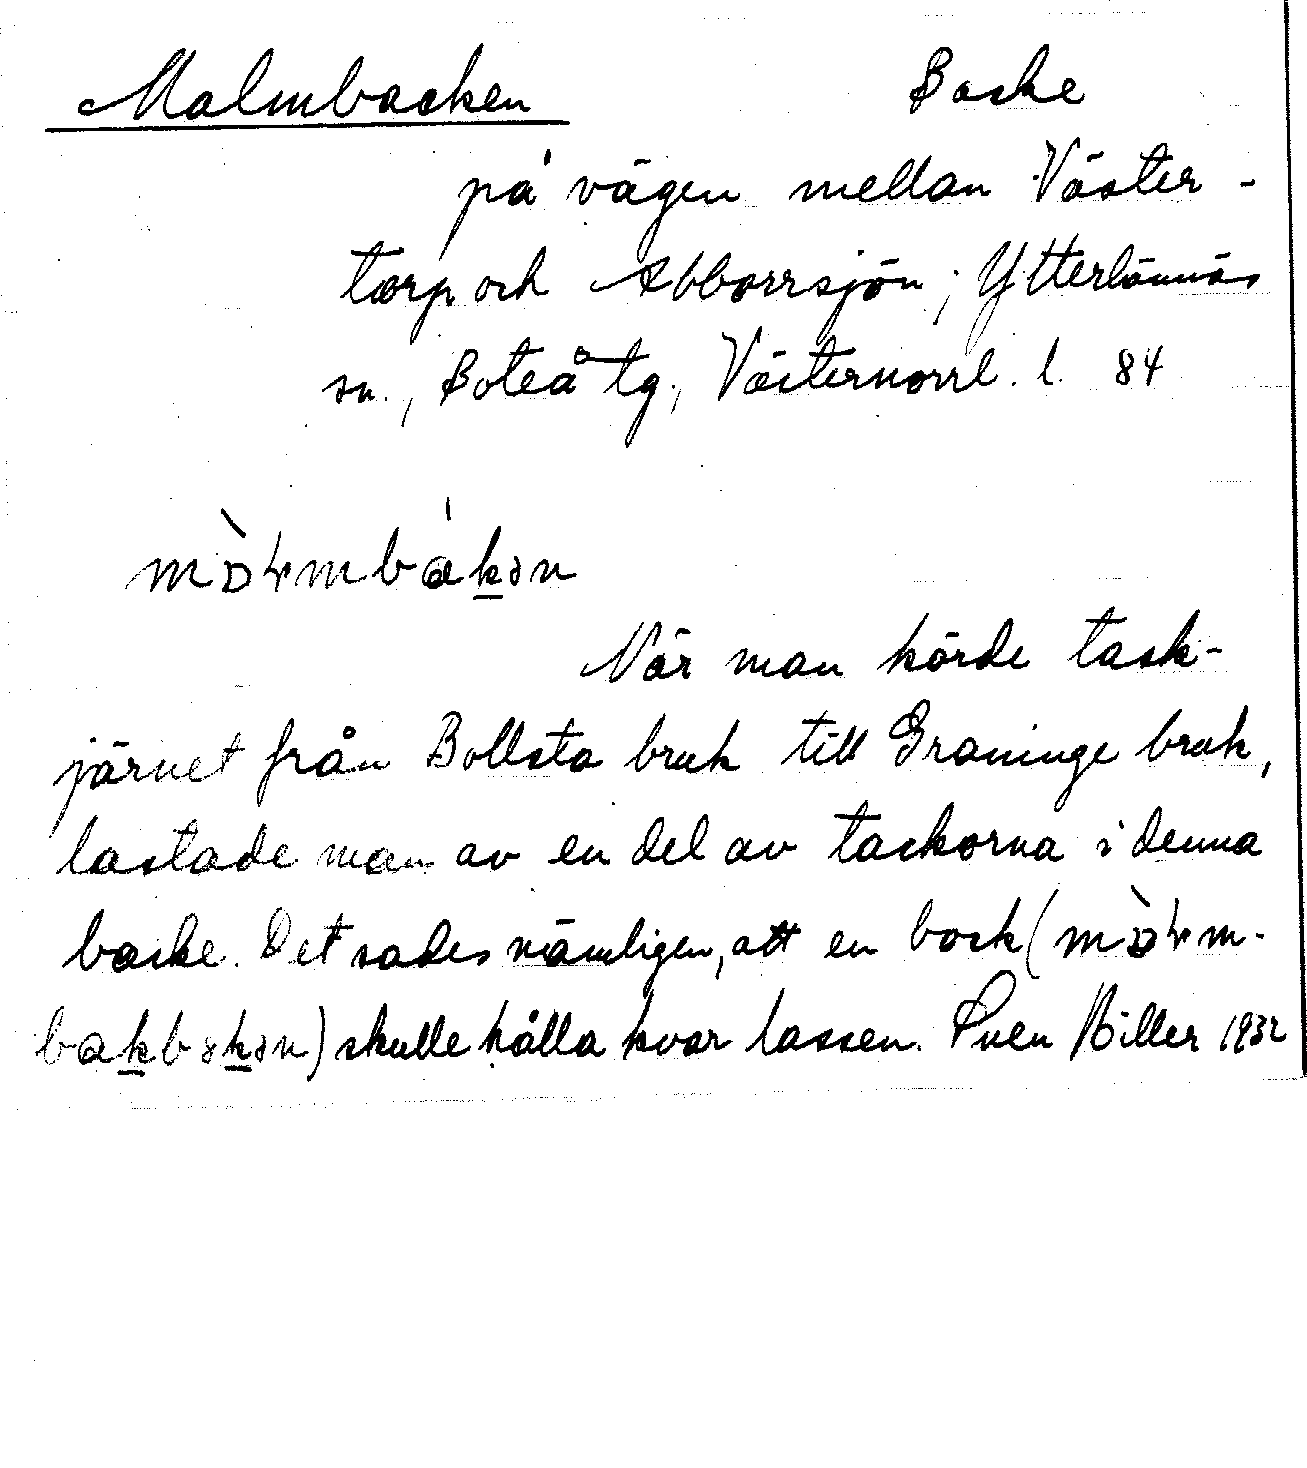 Malmbacken Backe
på vägen mellan Väster-
torp och Abborrsjön; Ytterlännäs
sn., Boteå tg., Västernorrl. l. 84
När man körde tack-
järnet från Bollsta bruk till Graninge bruk,
lastade man av en del av tackorna i denna
backe. Det sades nämligen, att en bock (
) skulle hålla kvar lassen. Sven Biller 1932